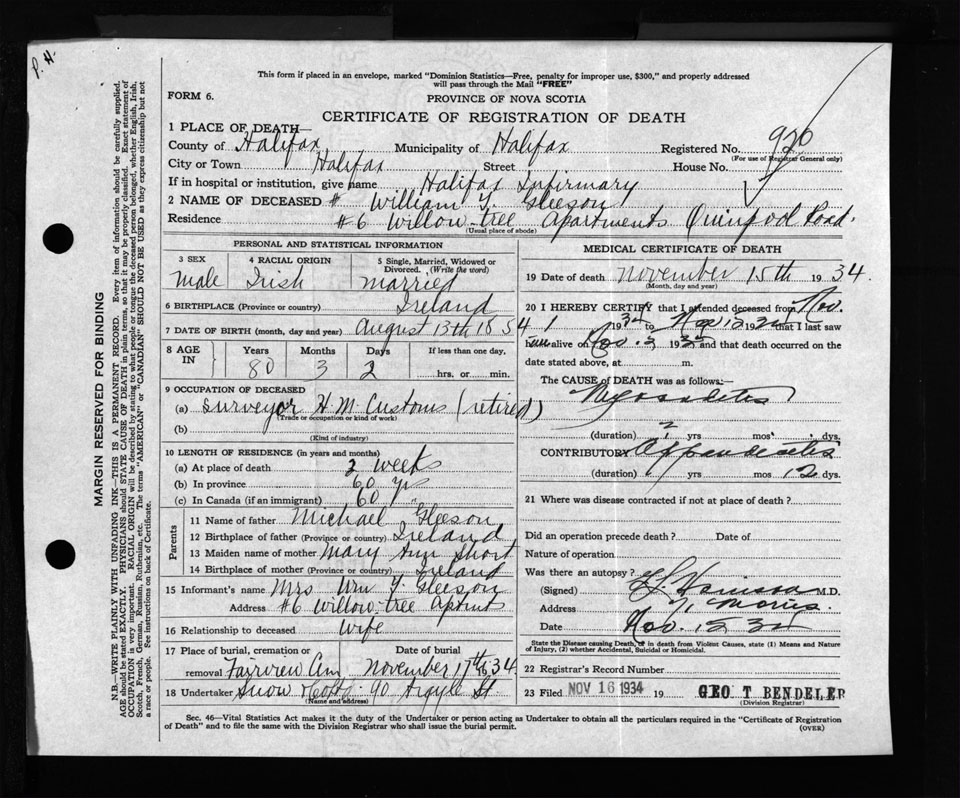 P. H.
This form if placed in an envelope, marked "Dominion Statistics—Free, penalty for improper use, $300," and properly addressed
will pass through the Mail "FREE"
FORM 6.
PROVINCE OF NOVA SCOTIA
CERTIFICATE OF REGISTRATION OF DEATH
1 PLACE OF DEATH—
County of Halifax Municipality of Halifax Registered No. 920
(For use of Registrar General only)
City or Town Halifax Street House No.
If in hospital or institution, give name Halifax Infirmary
2 NAME OF DECEASED # William Y. Gleeson
Residence #6 Willow-tree Apartments Quinpool Road.
(Usual place of abode)
PERSONAL AND STATISTICAL INFORMATION
3 SEX 4 RACIAL ORIGIN 5 Single, Married, Widowed or Divorced. (Write the word)
Male Irish married
6 BIRTHPLACE (Province or country) Ireland
7 DATE OF BIRTH (month, day and year) August 13th 1854
8 AGE IN Years Months Days If less than one day,
80 3 2 hrs. or min.
9 OCCUPATION OF DECEASED
(a) Surveyor H M Customs (retired)
(Trade or occupation or kind of work)
(b)
(Kind of industry)
10 LENGTH OF RESIDENCE (in years and months)
(a) At place of death 2 weeks
(b) In province 60 yrs
(c) In Canada (if an immigrant) 60 "
Parents
11 Name of father Michael Gleeson
12 Birthplace of father (Province or country) Ireland
13 Maiden name of mother Mary Ann Short
14 Birthplace of mother (Province or country) Ireland
15 Informant's name Mrs Wm Y. Gleeson
Address #6 Willow-tree Aptmts
16 Relationship to deceased Wife
17 Place of burial, cremation or removal Date of burial
Fairview Cem November 17th 1934
18 Undertaker Snow & Co Ltd. 90 Argyle St.
(Name and address)
MEDICAL CERTIFICATE OF DEATH
19 Date of death November 15th 1934.
(Month, day and year)
20 I HEREBY CERTIFY that I attended deceased from Nov.
1 1934 to Nov 15 1934 that I last saw
him alive on Nov. 193 and that death occurred on the
date stated above, at m.
The CAUSE of DEATH was as follows:—
Myocarditis
(duration) 2 yrs mos. dys.
CONTRIBUTORY Appendicitis
(duration) yrs mos 12 dys.
21 Where was disease contracted if not at place of death?
Did an operation precede death? Date of
Nature of operation
Was there an autopsy?
(Signed) M.D.
Address Morris.
Date Nov. 15 34
State the Disease causing Death, or in death from Violent Causes, state (1) Means and Nature
of Injury, (2) whether Accidental, Suicidal or Homicidal.
22 Registrar's Record Number
23 Filed NOV 16 1934 19 GEO T BENDELER
(Division Registrar)
Sec. 46—Vital Statistics Act makes it the duty of the Undertaker or person acting as Undertaker to obtain all the particulars required in the "Certificate of Registration
of Death" and to file the same with the Division Registrar who shall issue the burial permit. (OVER)
MARGIN RESERVED FOR BINDING
N.B.—WRITE PLAINLY WITH UNFADING INK—THIS IS A PERMANENT RECORD. Every item of information should be carefully supplied.
AGE should be stated EXACTLY. PHYSICIANS should STATE CAUSE OF DEATH in plain terms, so that it may be properly classified. Exact statement of
OCCUPATION is very important. RACIAL ORIGIN will be described by stating to what people or tongue the deceased person belonged, whether English, Irish,
Scotch, French, German, Russian, Ruthenian, etc. The terms "AMERICAN" or "CANADIAN" SHOULD NOT BE USED as they express citizenship but not
a race or people. See instructions on back of Certificate.